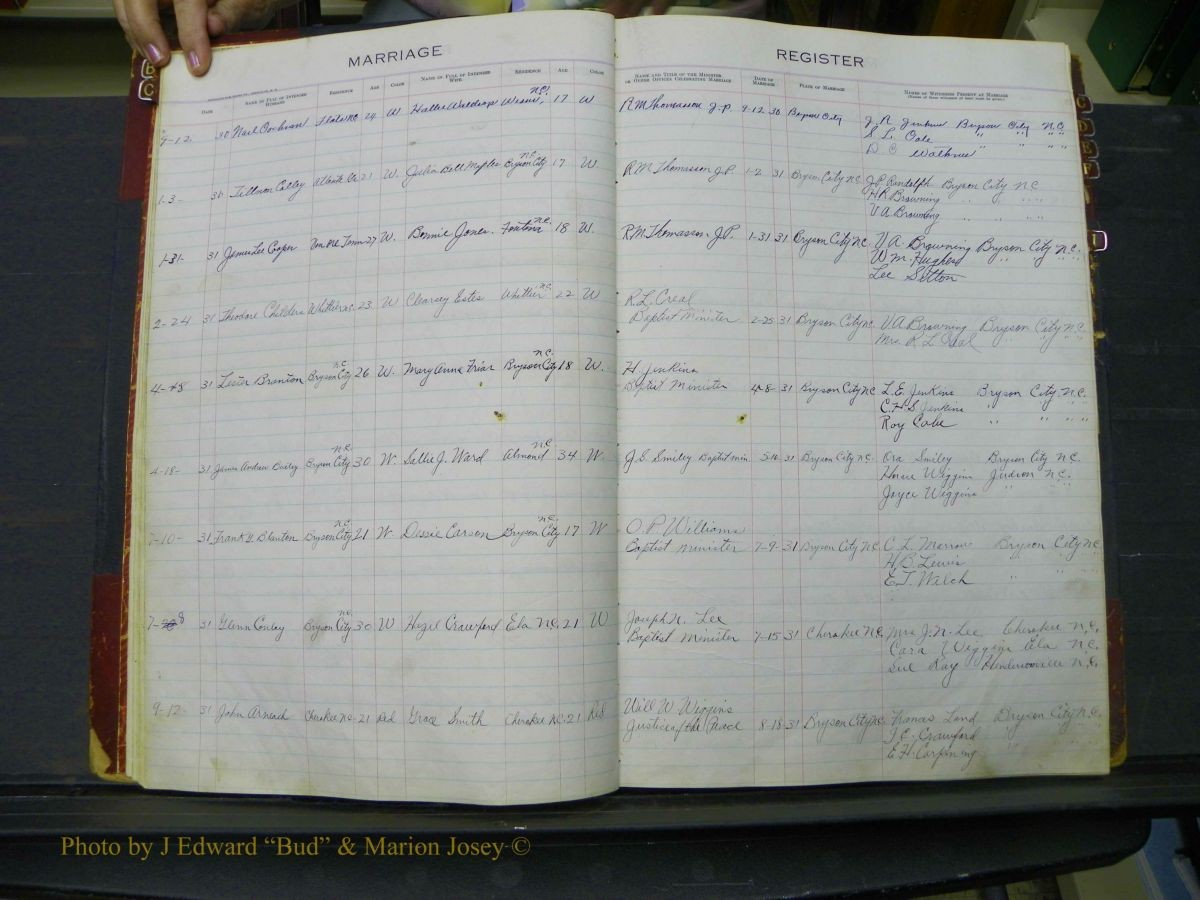 MARRIAGE
REGISTER
DATE NAME IN FULL OF INTENDED HUSBAND RESIDENCE AGE COLOR NAME IN FULL OF INTENDED WIFE RESIDENCE AGE COLOR
NAME AND TITLE OF THE MINISTER OR OTHER OFFICER CELEBRATING MARRIAGE DATE OF MARRIAGE PLACE OF MARRIAGE NAMES OF WITNESSES PRESENT AT MARRIAGE
N.C.
30 24 W 17 W R M Thomasson J.P. 9-12 30 Bryson City J. R. Jenkins Bryson City N.C.
S. L. " " " "
D. " " " "
N.C.
1-3 Tillman 21 W. Julia Bell Maples Bryson City 17 W. R M Thomasson J.P. 1-2 31 Bryson City N.C. J P Randolph Bryson City N.C.
H R Browning " " " "
V A Browning " " " "
N.C.
1-31- 31 James Lee Cooper 27 W. Bonnie Jones Fontana 18 W. R M Thomasson J.P. 1-31 31 Bryson City N.C. V A Browning Bryson City N.C.
W M Hughes " " " "
Lee Sitton
N.C.
R. L. Creal
2-24 31 Theodore Childers Whittier N.C. 23 W Clearcy Estes Whittier 22 W Baptist Minister 2-25 31 Bryson City N.C. V A Browning Bryson City N.C.
Mrs. R L Creal
N.C. N.C.
H Jenkins
31 Lester Branton Bryson City 26 W. Mary Anne Friar Bryson City 18 W. Baptist Minister 4-8- 31 Bryson City N.C. L. E. Jenkins Bryson City N.C.
C. H. S. Jenkins " " " "
Roy " " " "
N.C. N.C.
4-18- 31 James Andrew Bryson City 30 W Sallie J. Ward Almond 34 W. J. S. Smiley Baptist min 31 Bryson City N.C. Ora Smiley Bryson City N.C.
Wiggins Judson N.C.
Joyce Wiggins " "
N.C. N.C.
O. P. Williams
7-10- 31 Frank Blanton Bryson City 21 W Dessie Carson Bryson City 17 W Baptist minister 7-9-31 Bryson City N.C. C. L. Marrow Bryson City N.C.
H. B. Lewis " "
E. T. Welch " "
N.C.
Joseph N. Lee
31 Glenn Conley Bryson City 30 W Crawford Ela N.C. 21 W Baptist Minister 7-15 31 Cherokee N.C. Mrs J. N. Lee Cherokee N.C.
Cara Wiggins Ela N.C.
Sue Ray Hendersonville N.C.
Will W Wiggins
9-12- 31 John Arneach Cherokee N.C. 21 Red Grace Smith Cherokee N.C. 21 Red Justice of the Peace 8-18 31 Bryson City N.C. Francis Land Bryson City N.C.
Crawford
E. H. Corpening
B
C
C
D
E
F
Photo by J Edward “Bud” & Marion Josey ©